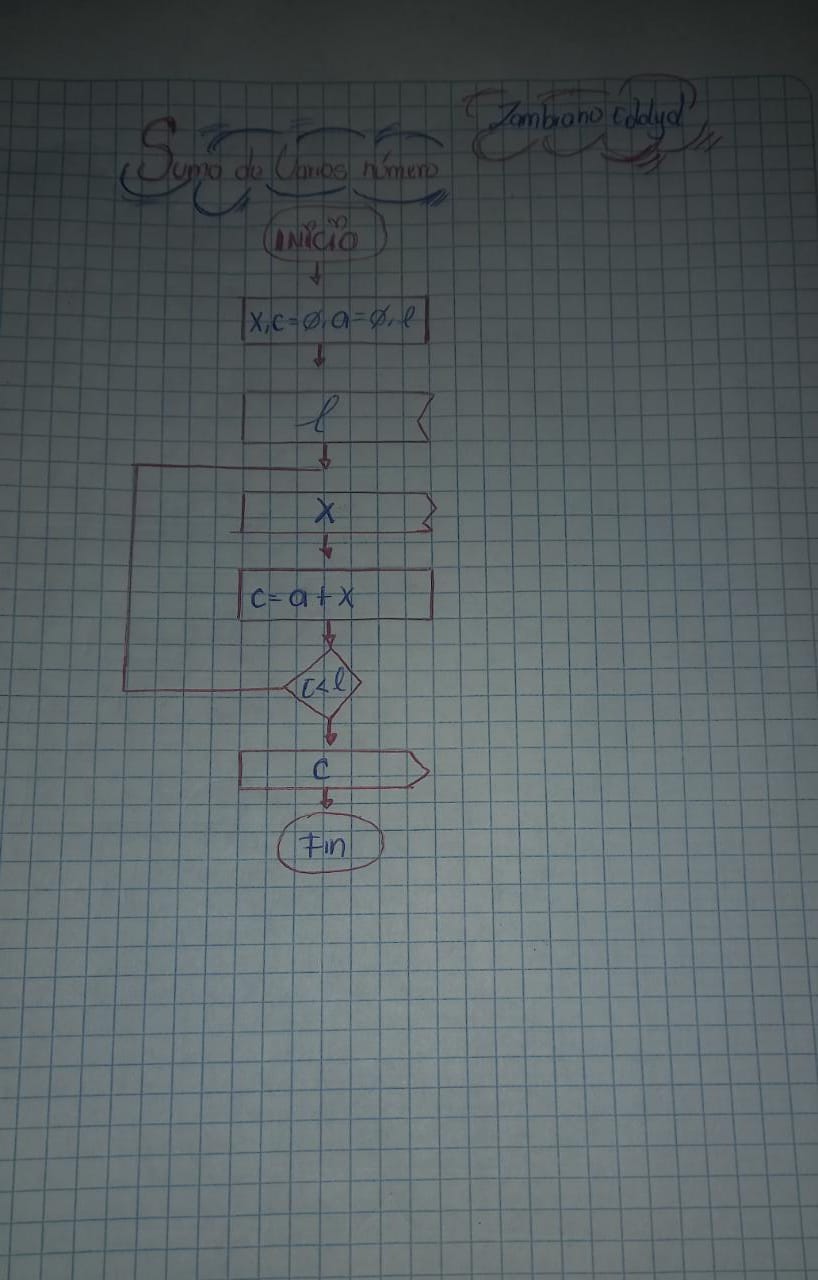 Zambrano Eddyd
Suma de Varios número
INICIO
x, c=∅, a=∅, l
l
x
c=a+x
c<l
c
Fin